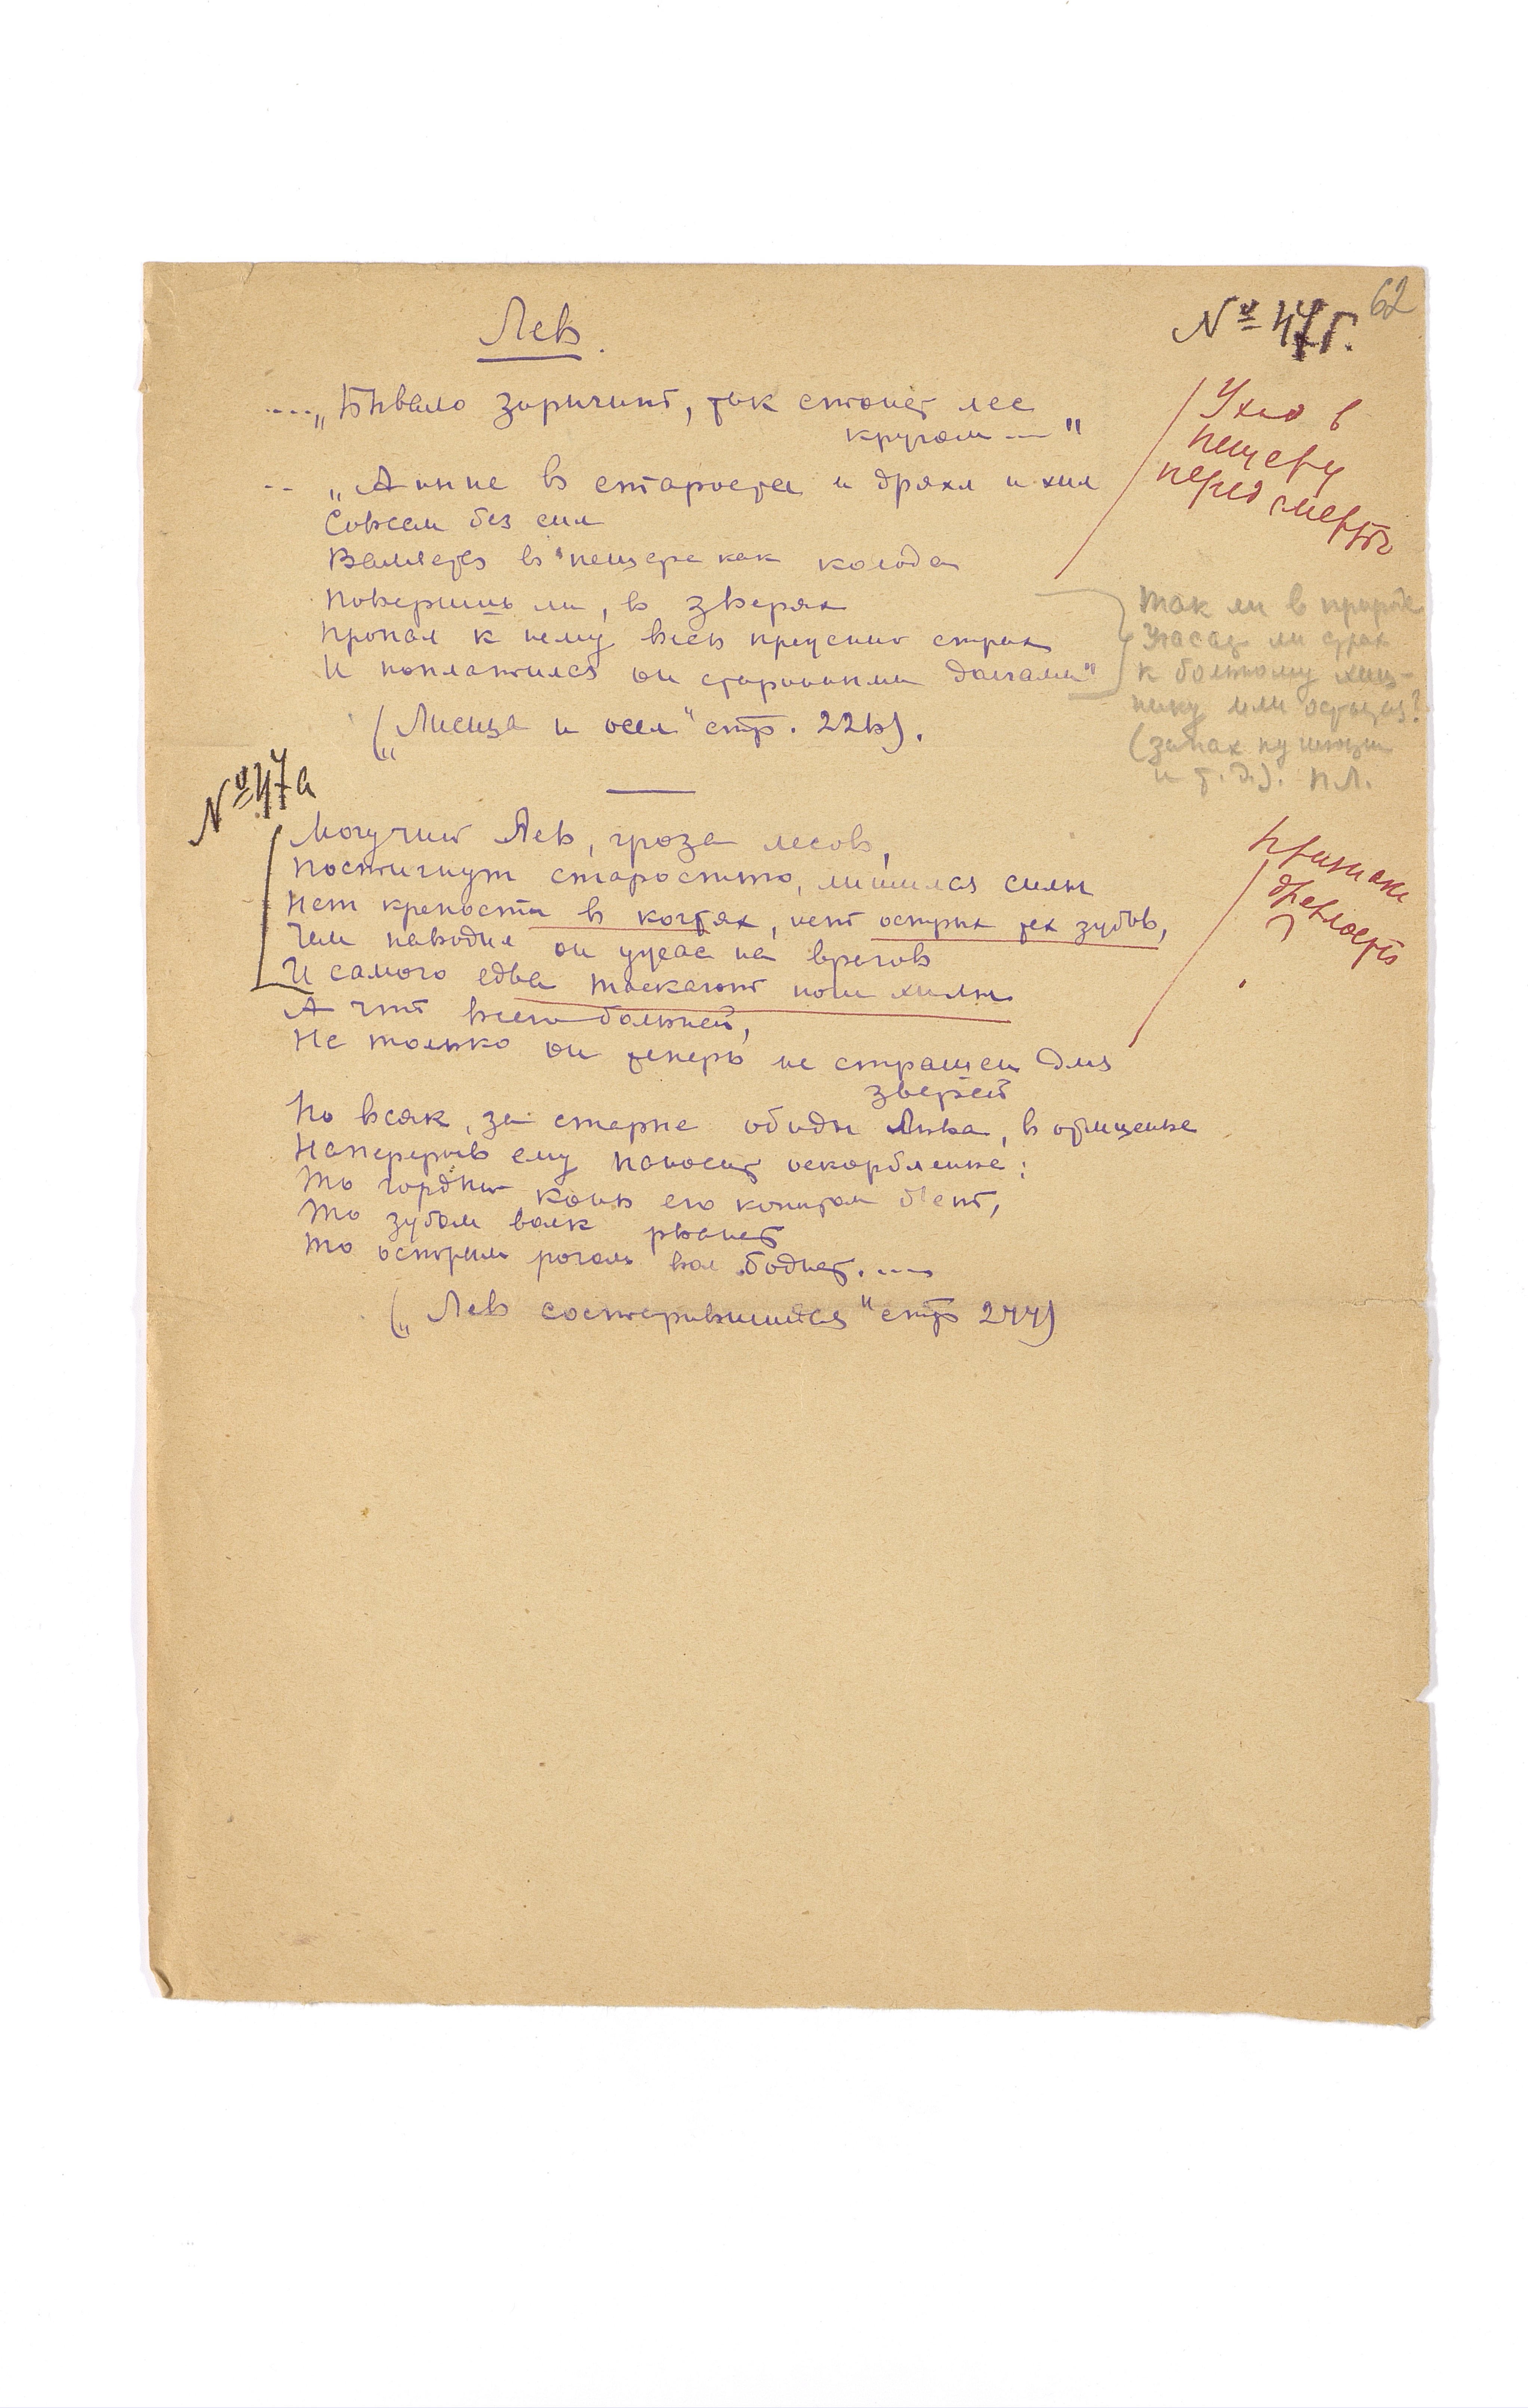 62
№ 47б.
Лев.
...."Бывало зарычит, так стонет лес
кругом ---"
-- "А ныне в старости и дряхл и хил
Совсем без сил
Валяется в пещере как колода
Поверишь ли, в зверях
Пропал к нему весь прежний страх
И поплатился он старинными долгами"
("Лисица и осел" стр. 226).
Уход в
пещеру
перед смертью
Так ли в природе
Угасает ли страх
к больному хищ-
нику или остается?
(запах
и т.д.). П.Л.
№ 47а
Могучий Лев, гроза лесов,
Постигнут старостью, лишился силы
Нет крепости в когтях, нет острых тех зубов,
Чем наводил он ужас на врагов
И самого едва таскают ноги хилы
А что всего больней,
Не только он теперь не страшен для
зверей
Но всяк, за старые обиды Льва, в отмщенье
Наперерыв ему наносит оскорбленье:
То гордый конь его копытом бьет,
То зубом волк рванет
То острым рогом вол боднет. ---
("Лев состарившийся" стр 244)
признаки
дряхлости